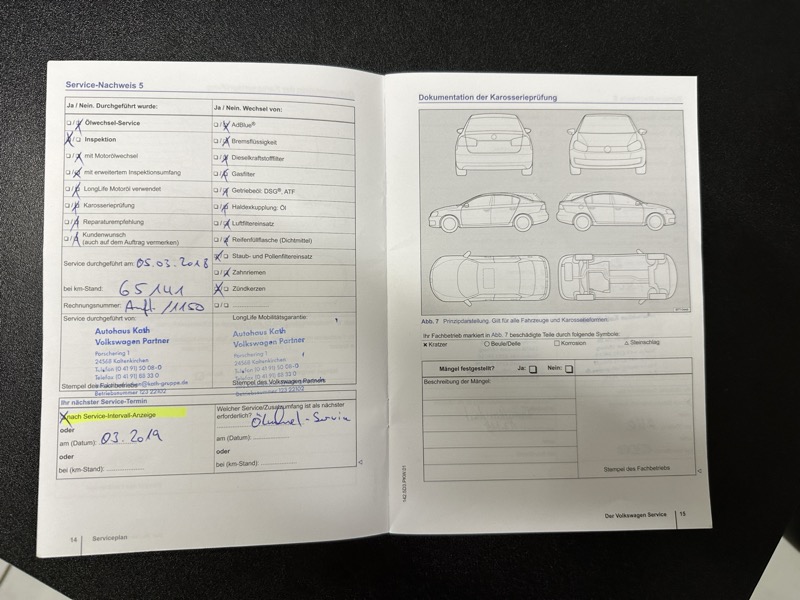 Service-Nachweis 5
Ja / Nein. Durchgeführt wurde:
❑ / ✗ Ölwechsel-Service
✗ / ❑ Inspektion
❑ / ✗ mit Motorölwechsel
❑ / ✗ mit erweitertem Inspektionsumfang
❑ / ✗ LongLife Motoröl verwendet
❑ / ✗ Karosserieprüfung
❑ / ✗ Reparaturempfehlung
❑ / ✗ Kundenwunsch
(auch auf dem Auftrag vermerken)
Ja / Nein. Wechsel von:
❑ / ✗ AdBlue®
❑ / ✗ Bremsflüssigkeit
❑ / ✗ Dieselkraftstofffilter
❑ / ✗ Gasfilter
❑ / ✗ Getriebeöl: DSG®, ATF
❑ / ✗ Haldexkupplung: Öl
❑ / ✗ Luftfiltereinsatz
❑ / ✗ Reifenfüllflasche (Dichtmittel)
✗ / ❑ Staub- und Pollenfiltereinsatz
❑ / ✗ Zahnriemen
✗ / ❑ Zündkerzen
❑ / ❑
Service durchgeführt am: 05.03.2018
bei km-Stand: 65141
Rechnungsnummer: Auft. /1150
Service durchgeführt von:
Autohaus Kath
Volkswagen Partner
Porschering 1
24568 Kaltenkirchen
Telefon (0 41 91) 50 08-0
Telefax (0 41 91) 88 33 0
Stempel des Fachbetriebs
Betriebsnummer 123 22102
LongLife Mobilitätsgarantie:
Autohaus Kath
Volkswagen Partner
Porschering 1
24568 Kaltenkirchen
Telefon (0 41 91) 50 08-0
Telefax (0 41 91) 88 33 0
Stempel des Volkswagen Partners
Betriebsnummer 123 22102
Ihr nächster Service-Termin
✗ nach Service-Intervall-Anzeige
oder
am (Datum): 03.2019
oder
bei (km-Stand):
Welcher Service/Zusatzumfang ist als nächster
erforderlich? Ölwechsel-Service
am (Datum):
oder
bei (km-Stand):
14 Serviceplan
Dokumentation der Karosserieprüfung
Abb. 7 Prinzipdarstellung. Gilt für alle Fahrzeuge und Karosserieformen.
Ihr Fachbetrieb markiert in Abb. 7 beschädigte Teile durch folgende Symbole:
✗ Kratzer ○ Beule/Delle □ Korrosion △ Steinschlag
Mängel festgestellt? Ja: ❑ Nein: ❑
Beschreibung der Mängel:
Stempel des Fachbetriebs
Der Volkswagen Service 15